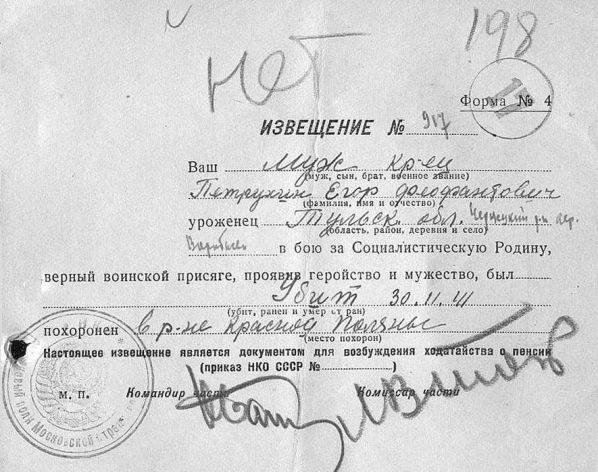 198
нет
17
Форма № 4
ИЗВЕЩЕНИЕ № 917
Ваш муж кр-ец
(муж, сын, брат, военное звание)
Петрухин Егор
(фамилия, имя и отчество)
уроженец Тульск. обл. р-н дер.
(область, район, деревня и село)
в бою за Социалистическую Родину,
верный воинской присяге, проявив геройство и мужество, был
Убит 30.11.41
(убит, ранен и умер от ран)
похоронен в р-не Красной Поляны
(место похорон)
Настоящее извещение является документом для возбуждения ходатайства о пенсии
(приказ НКО СССР №)
м. п. Командир части Комиссар части
Московской